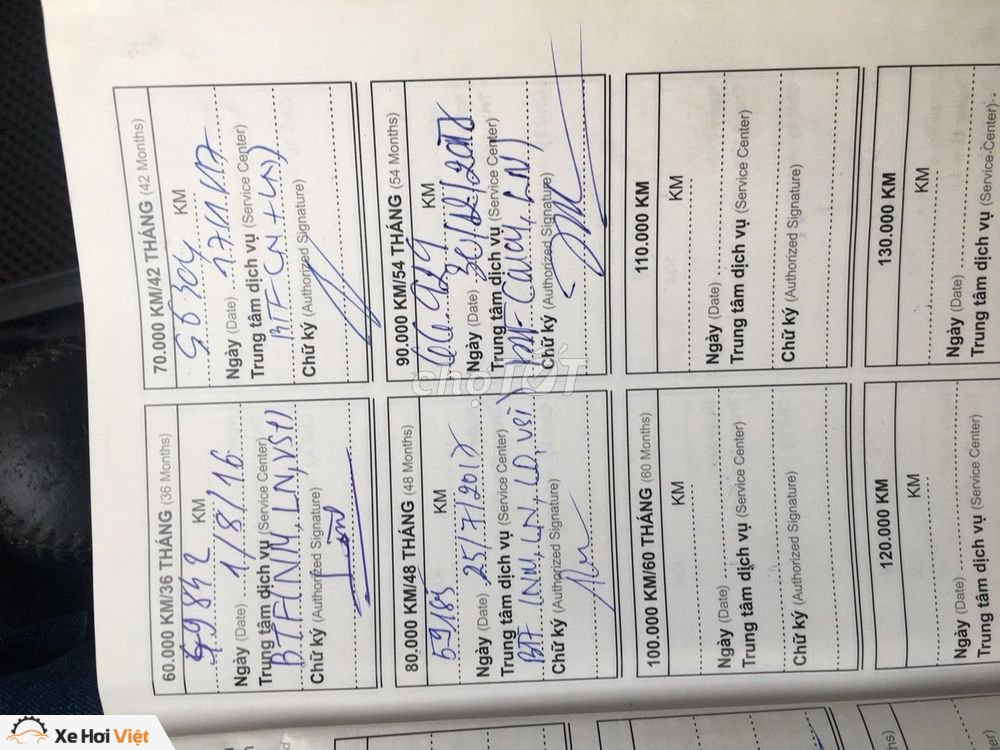 60.000 KM/36 THÁNG (36 Months)
KM
Ngày (Date) 1/8/16
Trung tâm dịch vụ (Service Center)
BTF(NM, LN, VSI)
Chữ ký (Authorized Signature)
70.000 KM/42 THÁNG (42 Months)
56304 KM
Ngày (Date) 17.11.17
Trung tâm dịch vụ (Service Center)
Chữ ký (Authorized Signature)
80.000 KM/48 THÁNG (48 Months)
59185 KM
Ngày (Date) 25/7/2017
Trung tâm dịch vụ (Service Center)
BTF (NM, LN, LD, VSI)
Chữ ký (Authorized Signature)
90.000 KM/54 THÁNG (54 Months)
66.929 KM
Ngày (Date) 30/12/2017
Trung tâm dịch vụ (Service Center)
Chữ ký (Authorized Signature)
100.000 KM/60 THÁNG (60 Months)
KM
Ngày (Date)
Trung tâm dịch vụ (Service Center)
Chữ ký (Authorized Signature)
110.000 KM
KM
Ngày (Date)
Trung tâm dịch vụ (Service Center)
Chữ ký (Authorized Signature)
120.000 KM
KM
Ngày (Date)
Trung tâm dịch vụ (Service Center)
130.000 KM
KM
Ngày (Date)
Trung tâm dịch vụ (Service Center)
chợTỐT
Xe Hơi Việt